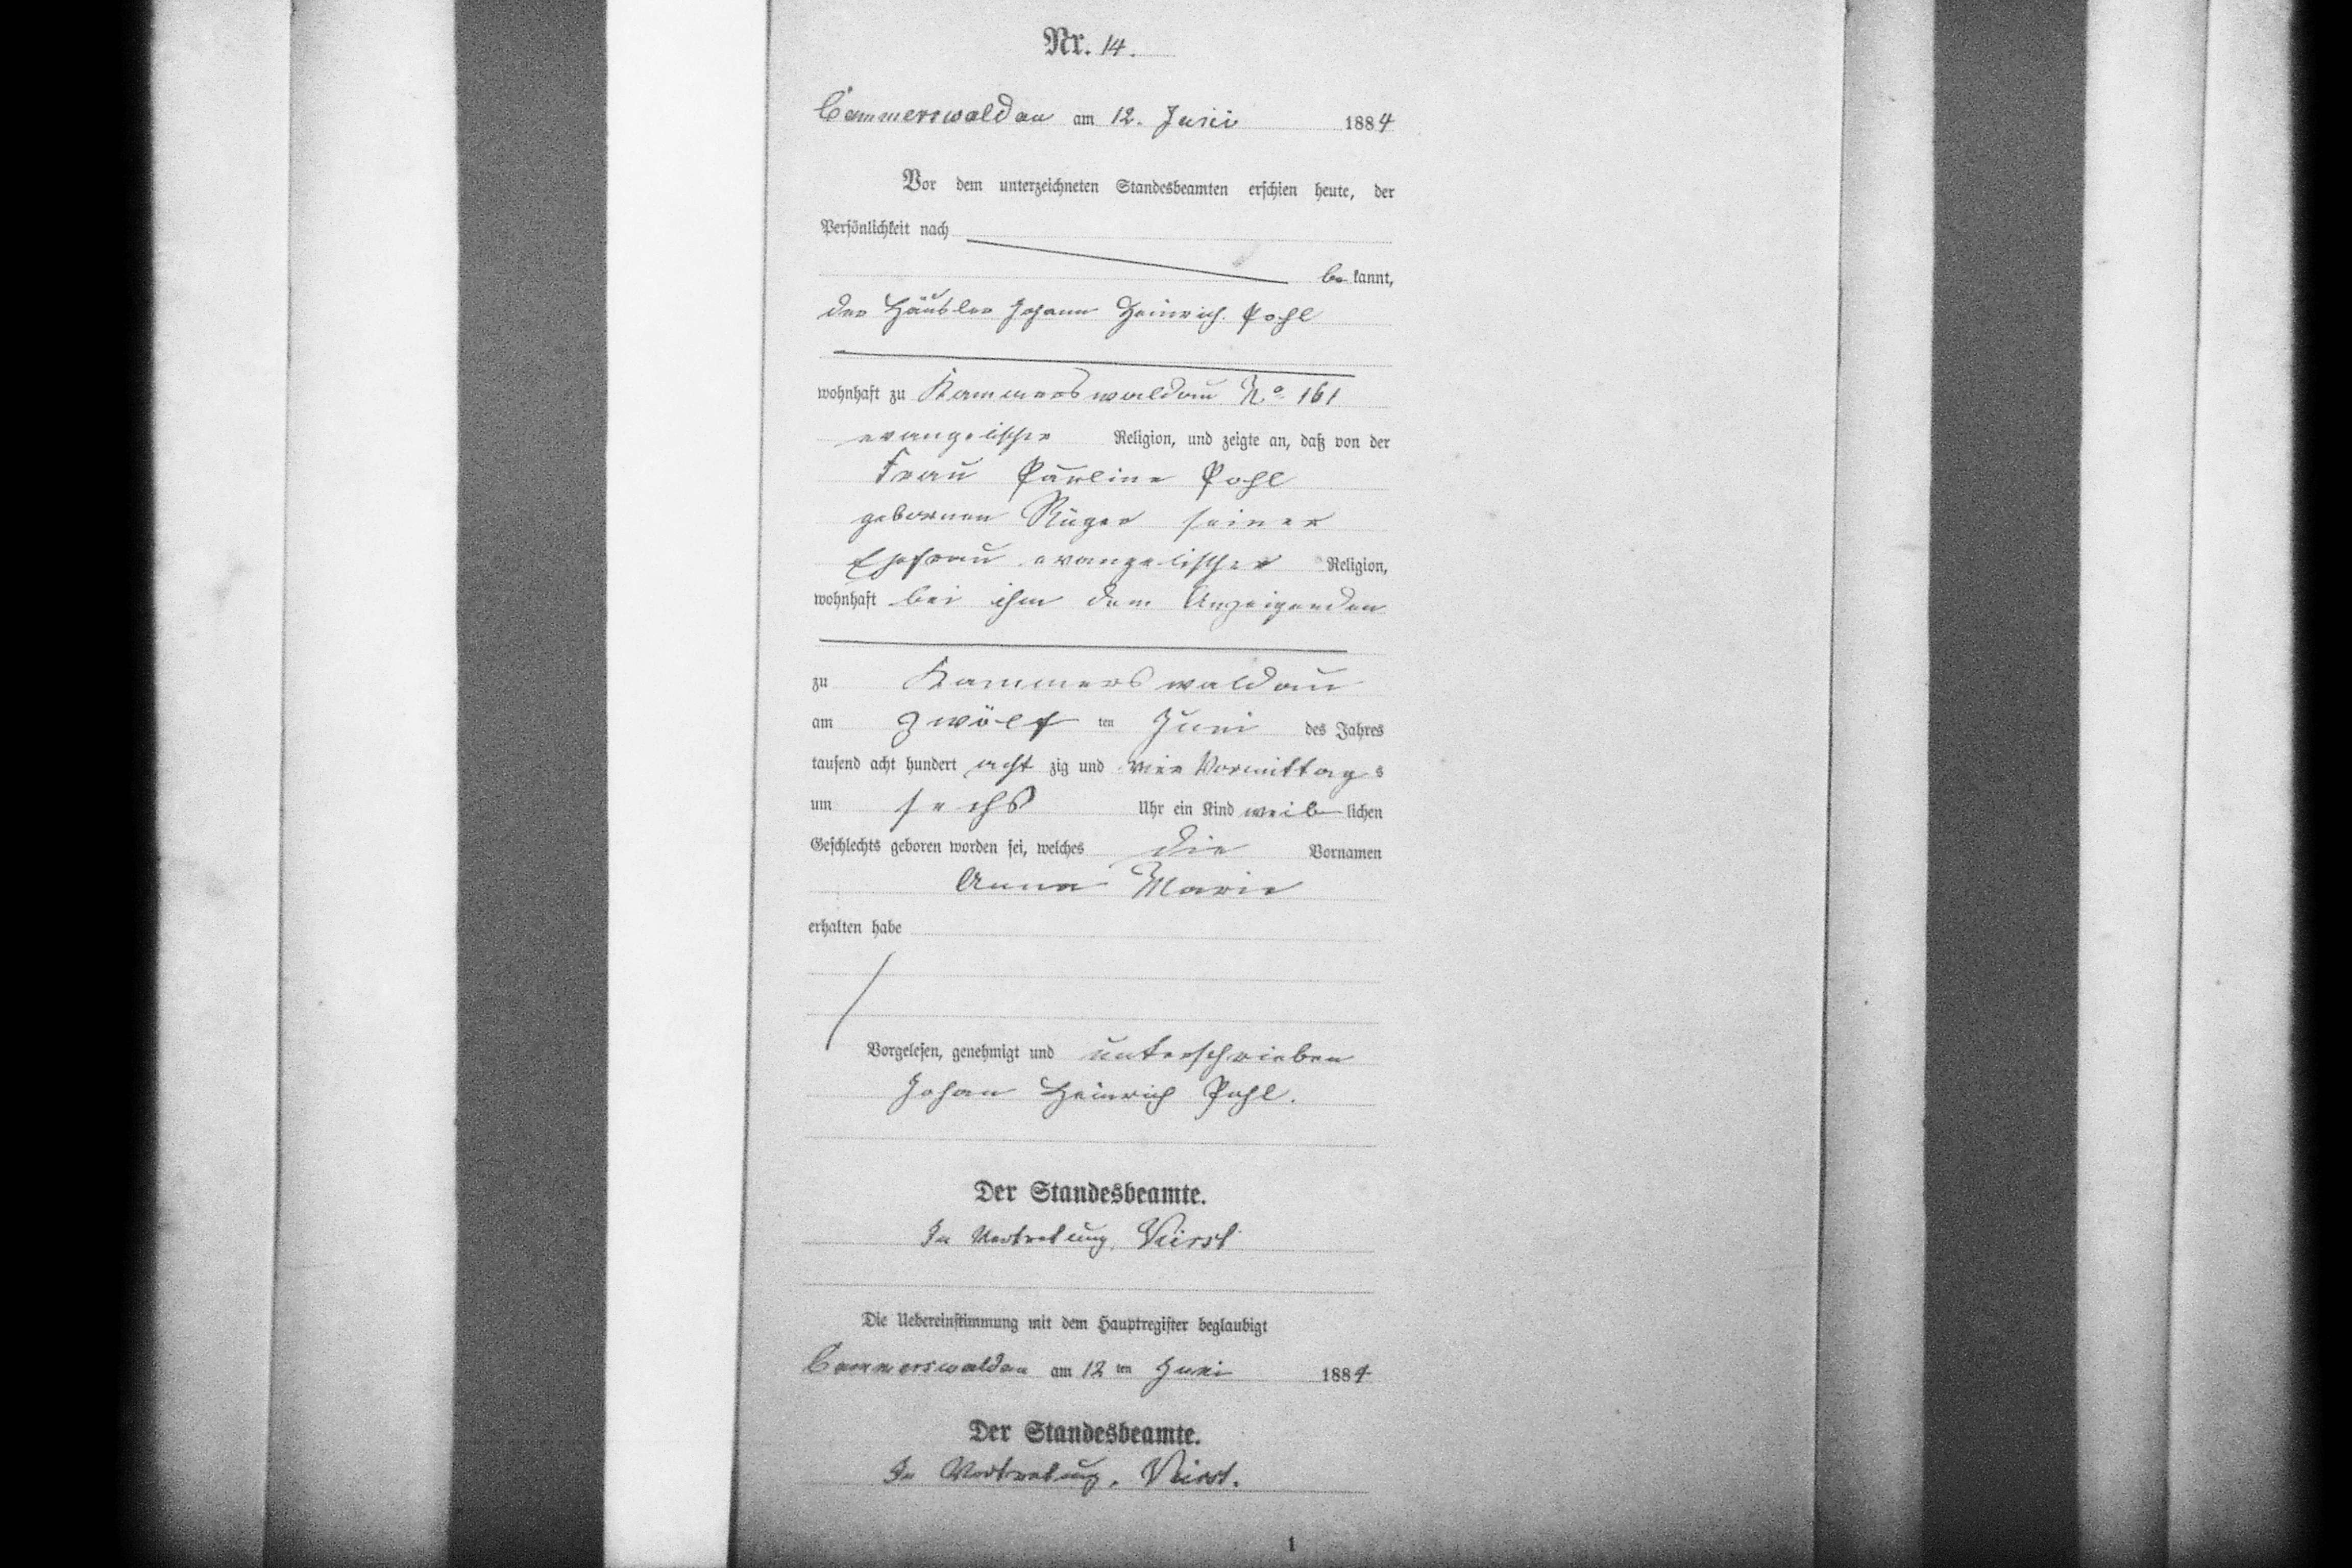 Nr. 14.
Cammerswaldau am 12. Juni 1884
Vor dem unterzeichneten Standesbeamten erschien heute, der
Persönlichkeit nach
be kannt,
der Häusler Johann Heinrich Pohl
wohnhaft zu Kammerswaldau No. 161
evangelischer Religion, und zeigte an, daß von der
Frau Pauline Pohl
gebornen Rüger seiner
Ehefrau evangelischer Religion,
wohnhaft bei ihm dem Anzeigenden
zu Kammerswaldau
am zwölf ten Juni des Jahres
tausend acht hundert acht zig und vier Vormittags
um sechs Uhr ein Kind weib lichen
Geschlechts geboren worden sei, welches die Vornamen
Anna Marie
erhalten habe
Vorgelesen, genehmigt und unterschrieben
Johan Heinrich Pohl.
Der Standesbeamte.
In Vertretung,
Die Uebereinstimmung mit dem Hauptregister beglaubigt
Cammerswaldau am 12 ten Juni 1884
Der Standesbeamte.
In Vertretung,
1